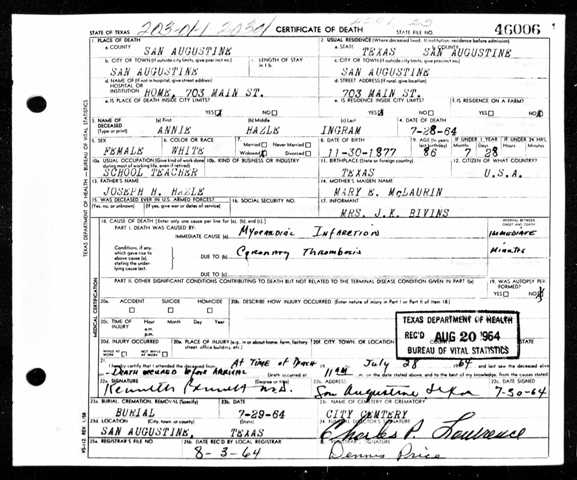 STATE OF TEXAS
CERTIFICATE OF DEATH
STATE FILE NO. 46006
1. PLACE OF DEATH
a. COUNTY
SAN AUGUSTINE
2. USUAL RESIDENCE (Where deceased lived. If institution: residence before admission)
a. STATE
TEXAS
b. COUNTY
SAN AUGUSTINE
b. CITY OR TOWN (If outside city limits, give precinct no.)
SAN AUGUSTINE
c. LENGTH OF STAY in 1 b.
c. CITY OR TOWN (If outside city limits, give precinct no.)
SAN AUGUSTINE
d. NAME OF (If not in hospital, give street address)
HOSPITAL OR
INSTITUTION
HOME, 703 MAIN ST.
d. STREET ADDRESS (If rural, give location)
703 MAIN ST.
e. IS PLACE OF DEATH INSIDE CITY LIMITS?
YES NO
e. IS RESIDENCE INSIDE CITY LIMITS?
YES NO
f. IS RESIDENCE ON A FARM?
YES NO
3. NAME OF DECEASED (Type or print)
(a) First
ANNIE
(b) Middle
HAZLE
(c) Last
INGRAM
4. DATE OF DEATH
7-28-64
5. SEX
FEMALE
6. COLOR OR RACE
WHITE
7. Married Never Married
Widowed Divorced
8. DATE OF BIRTH
11-30-1877
86
7 28
10a. USUAL OCCUPATION (Give kind of work done during most of working life, even if retired)
SCHOOL TEACHER
10b. KIND OF BUSINESS OR INDUSTRY
11. BIRTHPLACE (State or foreign country)
TEXAS
12. CITIZEN OF WHAT COUNTRY?
U.S.A.
13. FATHER'S NAME
JOSEPH H. HAZLE
14. MOTHER'S MAIDEN NAME
MARY E. McLAURIN
15. WAS DECEASED EVER IN U.S. ARMED FORCES?
(Yes, no, or unknown) (If yes, give war or dates of service)
16. SOCIAL SECURITY NO.
17. INFORMANT
MRS. J.K. BIVINS
18. CAUSE OF DEATH [Enter only one cause per line for (a), (b), and (c).]
INTERVAL BETWEEN ONSET AND DEATH
PART I. DEATH WAS CAUSED BY:
IMMEDIATE CAUSE (a) Myocardial Infarction
IMMEDIATE
Conditions, if any, which gave rise to above cause (a), stating the underlying cause last.
DUE TO (b) Coronary Thrombosis
Minutes
DUE TO (c)
PART II. OTHER SIGNIFICANT CONDITIONS CONTRIBUTING TO DEATH BUT NOT RELATED TO THE TERMINAL DISEASE CONDITION GIVEN IN PART I(a)
19. WAS AUTOPSY PERFORMED?
YES NO
20a. ACCIDENT SUICIDE HOMICIDE
20b. DESCRIBE HOW INJURY OCCURRED (Enter nature of injury in Part I or Part II of item 18.)
20c. TIME OF INJURY
Hour Month Day Year
a.m.
p.m.
20d. INJURY OCCURRED
WHILE AT WORK NOT WHILE AT WORK
20e. PLACE OF INJURY (e.g. in or about home, farm, factory, street, office building, etc.)
20f. CITY, TOWN, OR LOCATION
TEXAS DEPARTMENT OF HEALTH
REC'D AUG 20 1964
BUREAU OF VITAL STATISTICS
21. I hereby certify that I attended the deceased from At Time of Death July 28 64 and last saw the deceased alive
Death occurred before arrival Death occurred at 11 AM on the date stated above, and to the best of my knowledge, from the causes stated.
22a. SIGNATURE (Degree or title)
22b. ADDRESS
San Augustine Texas
22c. DATE SIGNED
7-30-64
23a. BURIAL, CREMATION, REMOVAL (Specify)
BURIAL
23b. DATE
7-29-64
23c. NAME OF CEMETERY OR CREMATORY
CITY CEMTERY
23d. LOCATION
SAN AUGUSTINE, TEXAS
24. FUNERAL DIRECTOR'S SIGNATURE
Charles P. Lawrence
25a. REGISTRAR'S FILE NO.
25b. DATE REC'D BY LOCAL REGISTRAR
8-3-64
Dennis Price
TEXAS DEPARTMENT OF HEALTH — BUREAU OF VITAL STATISTICS
MEDICAL CERTIFICATION